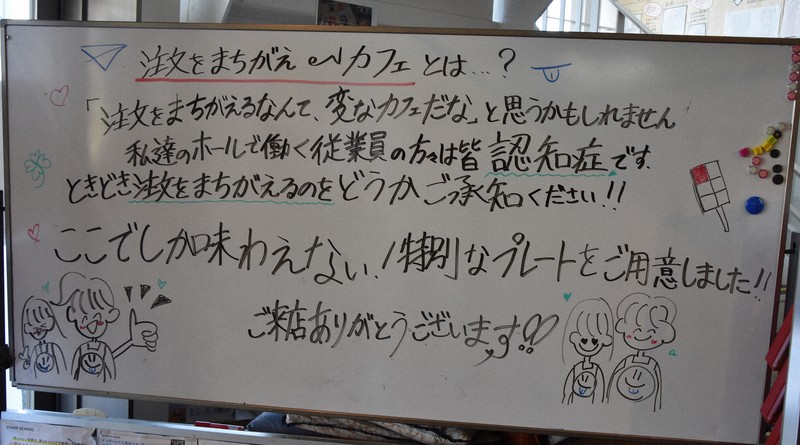 注文をまちがえるカフェとは…？
「注文をまちがえるなんて、変なカフェだな」と思うかもしれません
私達のホールで働く従業員の方々は皆認知症です。
ときどき注文をまちがえるのをどうかご承知ください!!
ここでしか味わえない!特別なプレートをご用意しました!!
ご来店ありがとうございます!!